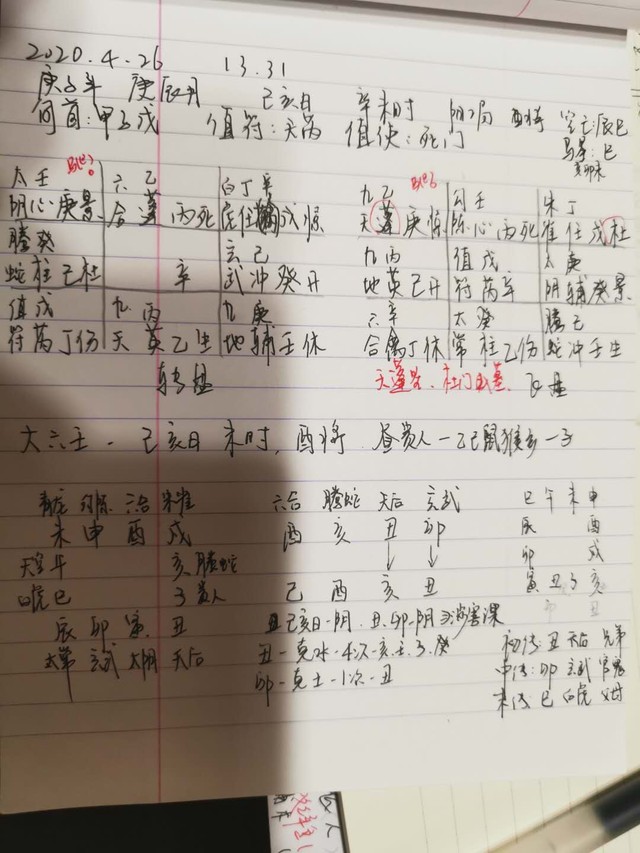 2020.4.26 13.31
庚子年 庚辰月 己亥日 辛未时 阴2局 酉将 空亡:辰巳
旬首:甲子戊 值符:天芮 值使:死门 马星:巳
太壬 六乙 白丁辛 九乙 勾壬 朱丁
阴心庚景 合蓬丙死 虎任禽戊惊 天蓬庚惊 陈心丙死 雀任戊杜
腾癸 玄己 九丙 值戊 太庚
蛇柱己杜 辛 武冲癸开 地英己开 符芮辛 阴辅癸景
值戊 九丙 九庚 六辛 太癸 腾己
符芮丁伤 天英乙生 地辅壬休 合禽丁休 常柱乙伤 蛇冲壬生
转盘 飞盘
大六壬 - 己亥日 未时,酉将 昼贵人-乙己鼠猴乡-子
青龙 勾陈 六合 朱雀 六合 腾蛇 天后 玄武 巳午未申
未 申 酉 戌 酉 亥 丑 卯 辰 酉
天空午 亥腾蛇 卯 戌
白虎巳 子贵人 己 酉 亥 丑 寅丑子亥
辰 卯 寅 丑 己亥日-阴.丑.卯-阴
太常 玄武 太阴 天后 丑-克水-4次-亥.壬.子.癸 初传:丑 天后 兄弟
卯-克土-1次-丑 中传:卯 玄武 官鬼
末传:巳 白虎 父母